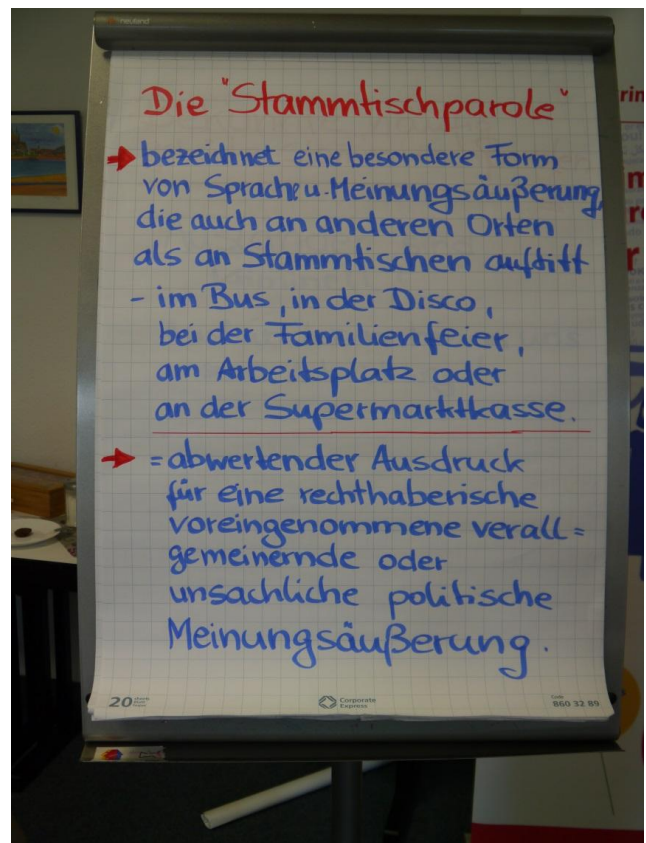 neuland
Die "Stammtischparole"
bezeichnet eine besondere Form
von Sprache u. Meinungsäußerung,
die auch an anderen Orten
als an Stammtischen auftritt
- im Bus, in der Disco,
bei der Familienfeier,
am Arbeitsplatz oder
an der Supermarktkasse.
= abwertender Ausdruck
für eine rechthaberische
voreingenommene verall=
gemeinernde oder
unsachliche politische
Meinungsäußerung.
20
Corporate
Express
Code
860 32 89
rin